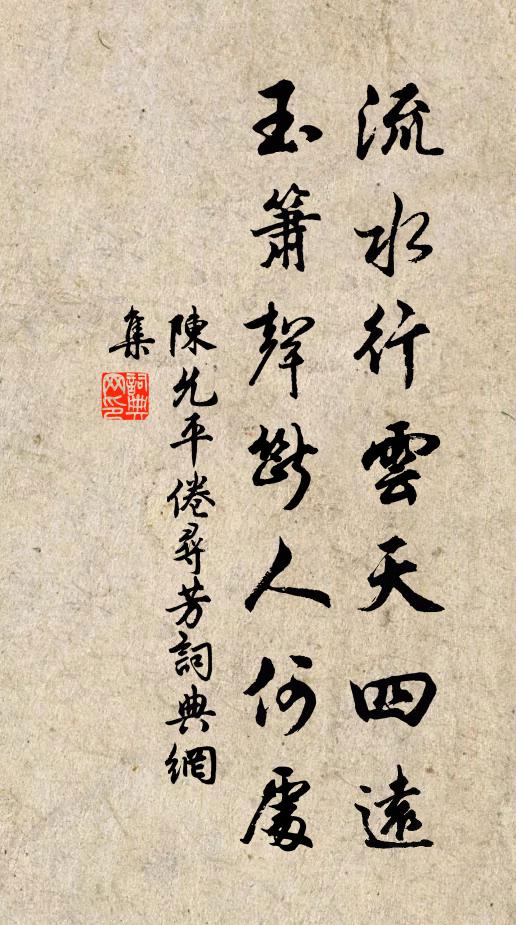 流水行雲天四遠
玉簫聲斷人何處
陳允平倦尋芳詞典網
集
詞典网印